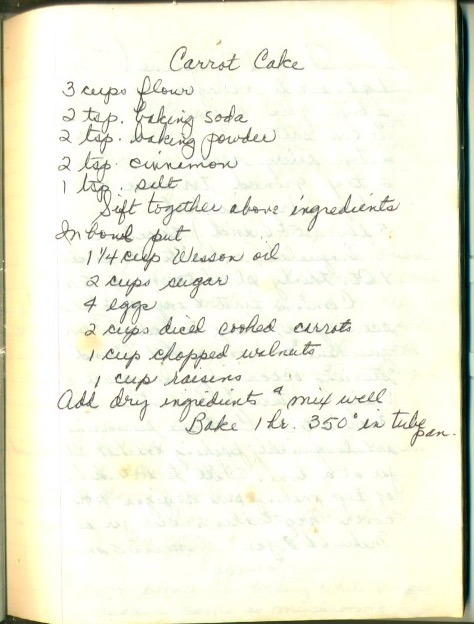 Carrot Cake
3 cups flour
2 tsp. baking soda
2 tsp. baking powder
2 tsp. cinnamon
1 tsp. salt
Sift together above ingredients
In bowl put
1 1/4 cup Wesson oil
2 cups sugar
4 eggs
2 cups diced cooked carrots
1 cup chopped walnuts
1 cup raisins
Add dry ingredients & mix well
Bake 1 hr. 350° in tube
pan.